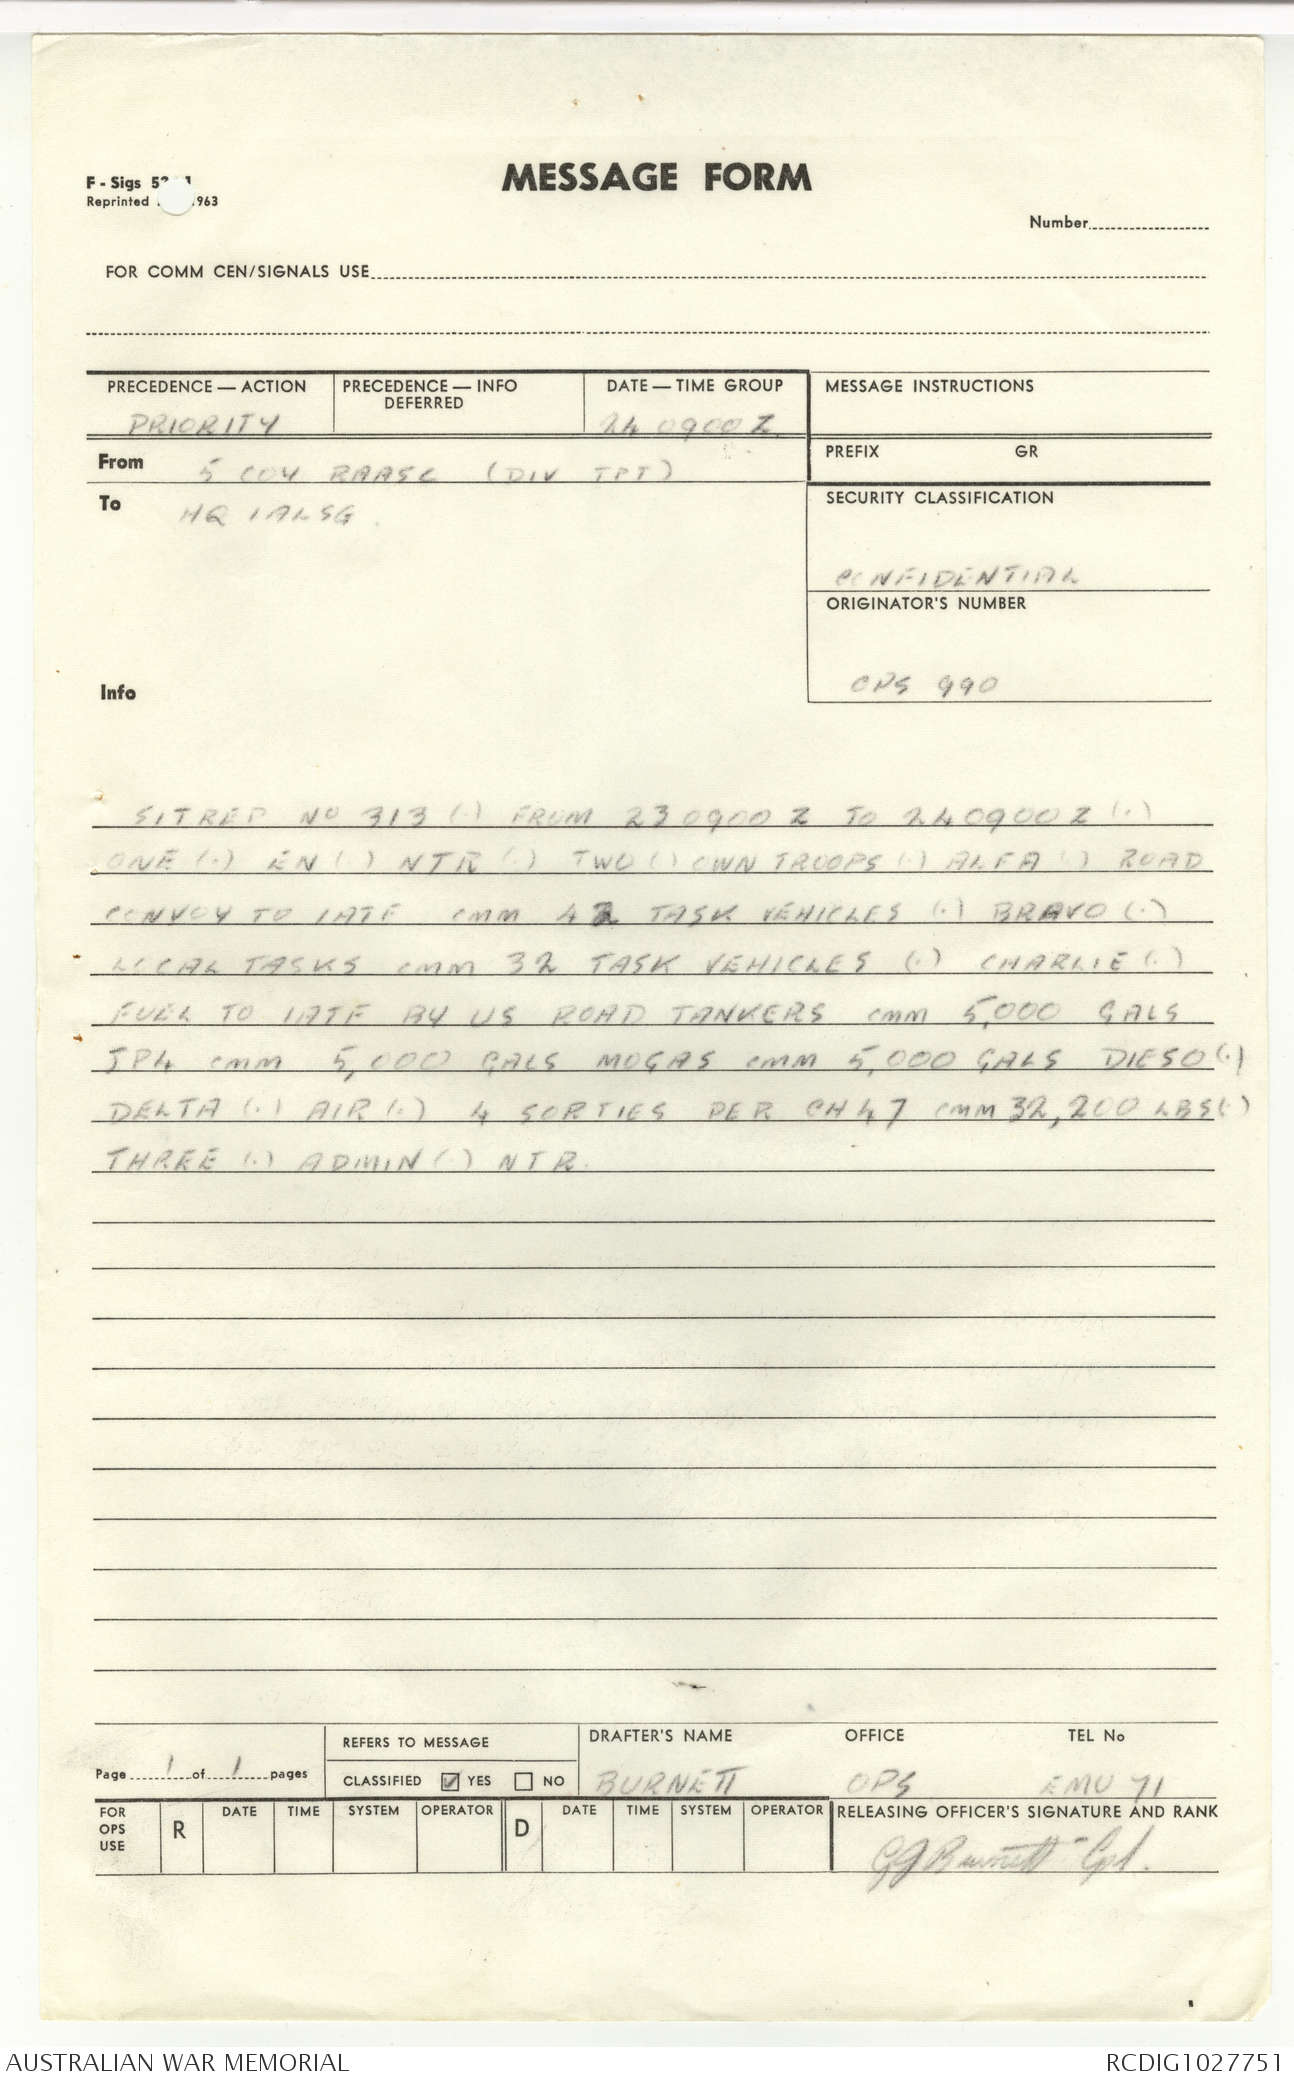 MESSAGE FORM
F - Sigs
Reprinted 1963
Number
FOR COMM CEN/SIGNALS USE
PRECEDENCE — ACTION
PRIORITY
PRECEDENCE — INFO
DEFERRED
DATE — TIME GROUP
240900Z
MESSAGE INSTRUCTIONS
From 5 COY RAASC (DIV TPT)
PREFIX GR
To HQ 1ALSG.
SECURITY CLASSIFICATION
CONFIDENTIAL
ORIGINATOR'S NUMBER
OPS 990
Info
SITREP No 313 (.) FROM 230900Z TO 240900Z (.)
ONE (.) EN (.) NTR (.) TWO (.) OWN TROOPS (.) ALFA (.) ROAD
CONVOY TO 1ATF cmm 42 TASK VEHICLES (.) BRAVO (.)
LOCAL TASKS cmm 32 TASK VEHICLES (.) CHARLIE (.)
FUEL TO 1ATF BY US ROAD TANKERS cmm 5,000 GALS
JP4 cmm 5,000 GALS MOGAS cmm 5,000 GALS DIESO (.)
DELTA (.) AIR (.) 4 SORTIES PER CH47 cmm 32,200 LBS (.)
THREE (.) ADMIN (.) NTR.
Page 1 of 1 pages
REFERS TO MESSAGE
CLASSIFIED YES NO
DRAFTER'S NAME
BURNETT
OFFICE
OPS
TEL No
EMU 71
FOR OPS USE R DATE TIME SYSTEM OPERATOR D DATE TIME SYSTEM OPERATOR
RELEASING OFFICER'S SIGNATURE AND RANK
GJ Burnett Cpl.
AUSTRALIAN WAR MEMORIAL
RCDIG1027751